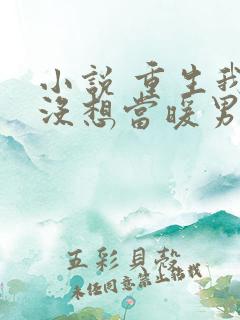 小說 重生我
沒想當暖男
五彩貝殼
未經同意禁止轉載